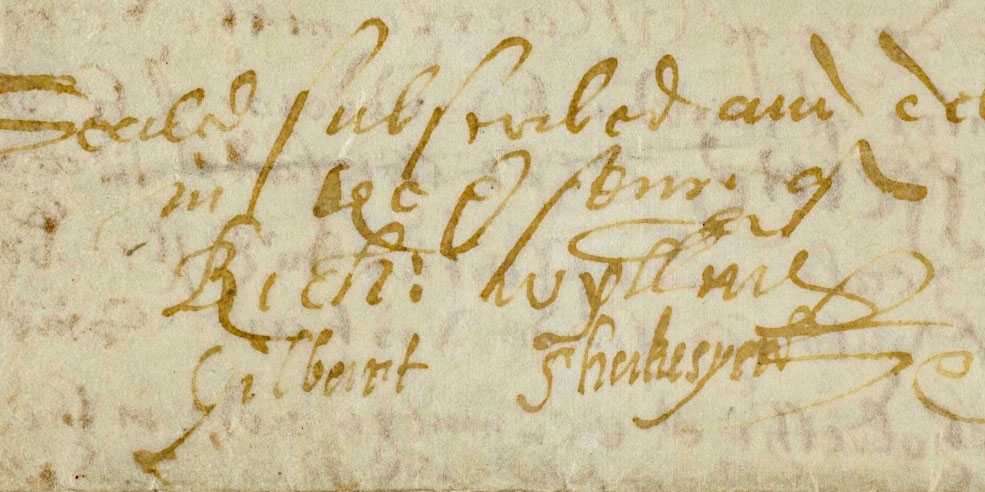 Sealed subscribed and del
in the p̱sence of
Rich: Wyllms
Gilbert Shakespere